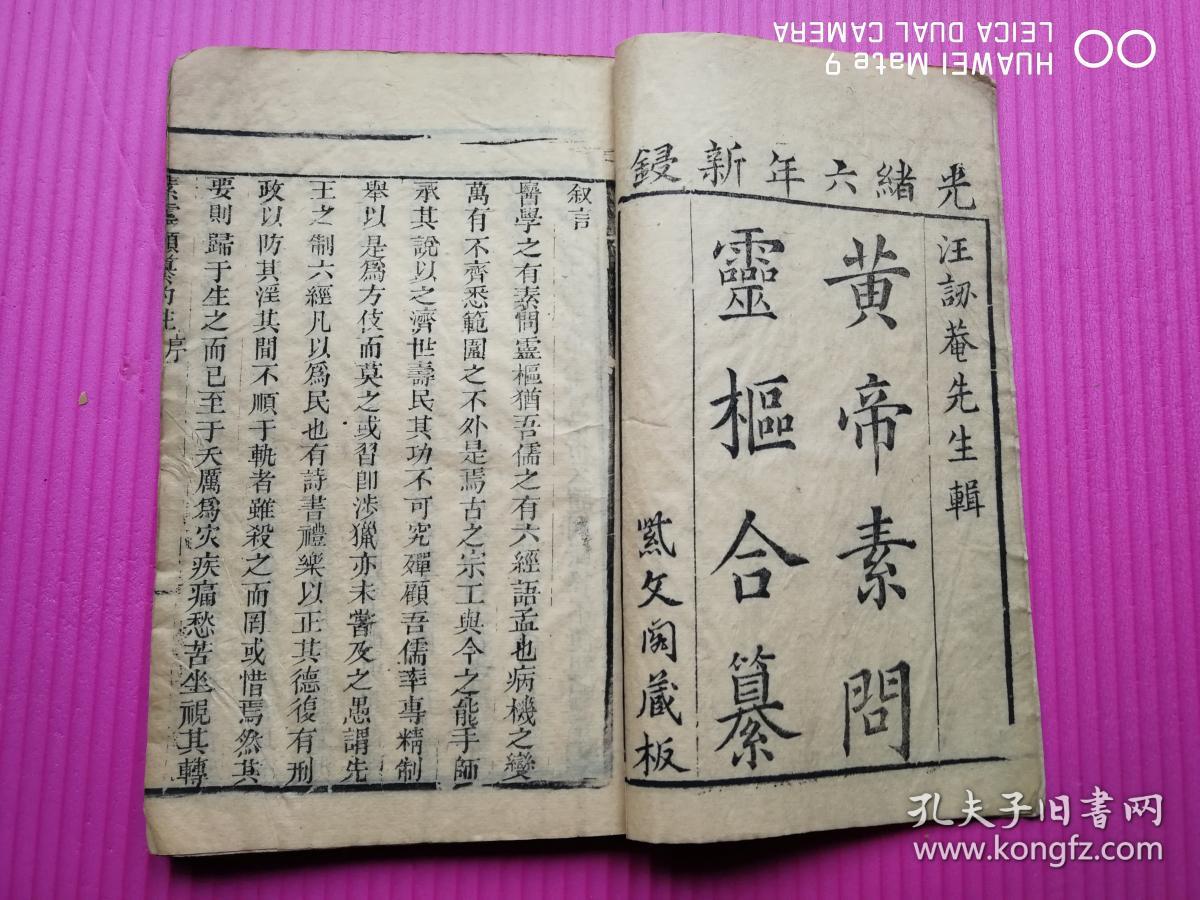 HUAWEI Mate 9
LEICA DUAL CAMERA
光緒六年新鋟
汪訒菴先生輯
黃帝素問
靈樞合纂
紫文閣藏板
叙言
醫學之有素問靈樞猶吾儒之有六經語孟也病機之變
萬有不齊悉範圍之不外是焉古之宗工與今之能手師
承其說以之濟世壽民其功不可究殫顧吾儒率專精制
舉以是爲方伎而莫之或習卽渉獵亦未嘗及之愚謂先
王之制六經凡以爲民也有詩書禮樂以正其德復有刑
政以防其淫其間不順于軌者雖殺之而罔或惜焉然其
要則歸于生之而已至于夭厲爲灾疾痛愁苦坐視其轉
素靈類纂約註 序
孔夫子旧书网
www.kongfz.com